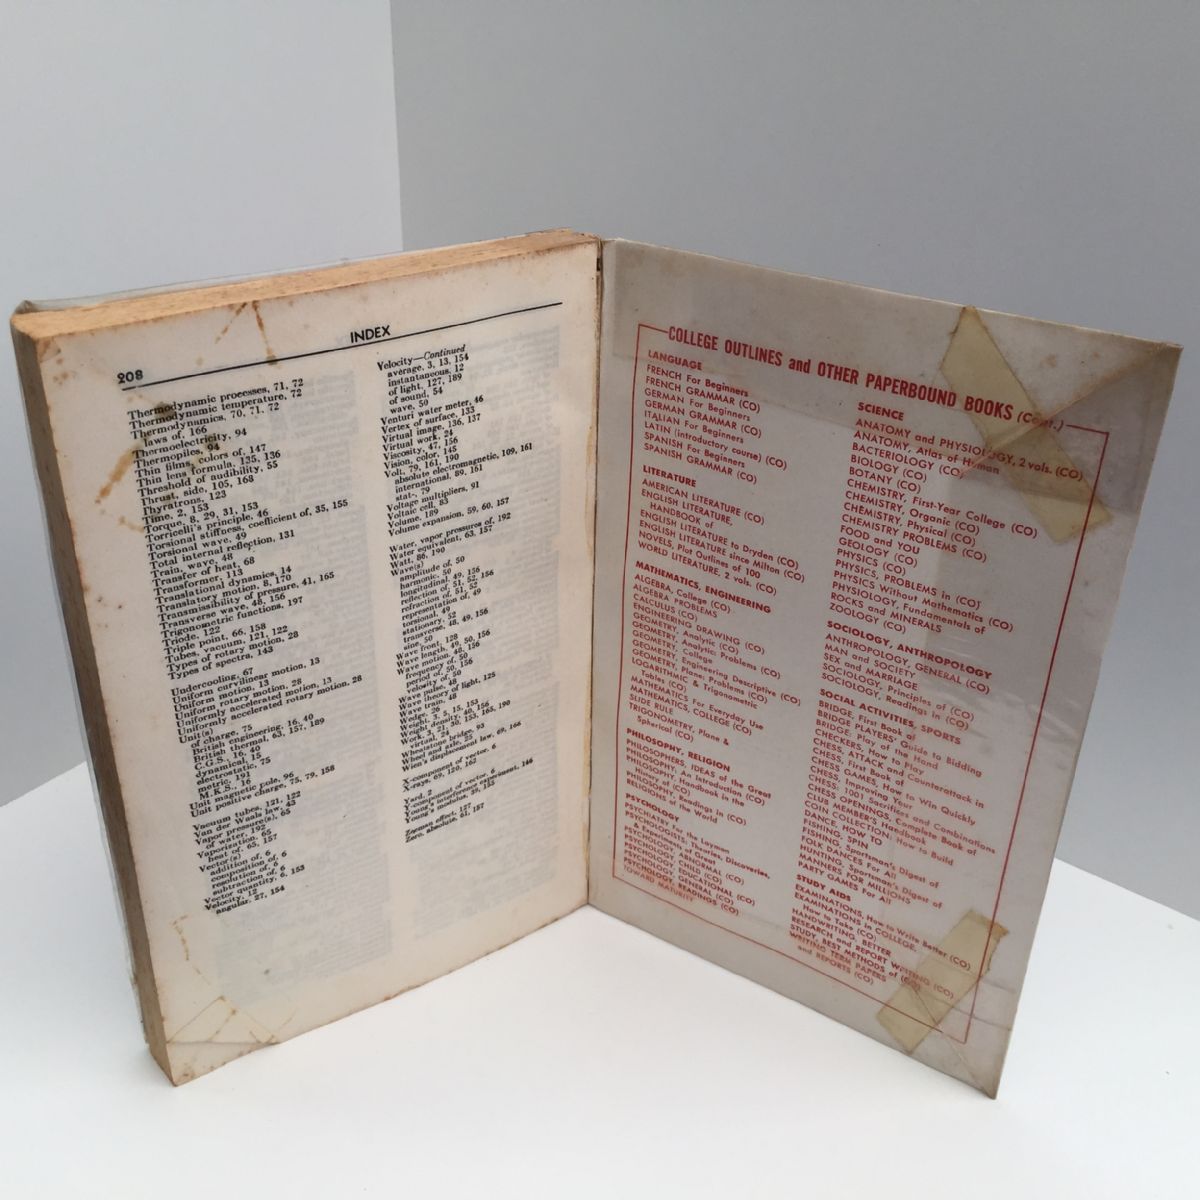 208
INDEX
Thermodynamic processes, 71, 72
Thermodynamic temperature, 72
Thermodynamics, 70, 71, 72
laws of, 166
Thermoelectricity, 94
Thermopiles, 94
Thin films, colors of, 147
Thin lens formula, 135, 136
Threshold of audibility, 55
Thrust, side, 105, 168
Thyratrons, 123
Time, 2, 153
Torque, 8, 29, 31, 153
Torricelli's principle, 46
Torsional stiffness, coefficient of, 35, 155
Torsional wave, 49
Total internal reflection, 131
Train, wave, 48
Transfer of heat, 68
Transformer, 113
Translational dynamics, 14
Translatory motion, 8, 170
Transmissibility of pressure, 41, 165
Transverse wave, 48, 156
Trigonometric functions, 197
Triode, 122
Triple point, 66, 158
Tubes, vacuum, 121, 122
Types of rotary motion, 28
Types of spectra, 143
Undercooling, 67
Uniform curvilinear motion, 13
Uniform motion, 13
Uniform rotary motion, 28
Uniformly accelerated motion, 13
Uniformly accelerated rotary motion, 28
Unit(s)
of charge, 75
British engineering, 16, 40
British thermal, 63, 157, 189
C.G.S., 16, 40
dynamical, 15
electrostatic, 75
metric, 191
M.K.S., 16
Unit magnetic pole, 96
Unit positive charge, 75, 79, 158
Vacuum tubes, 121, 122
Van der Waals law, 43
Vapor pressure(s), 65
of water, 192
Vaporization, 65
heat of, 65, 157
Vector(s)
addition of, 6
composition of, 6
resolution of, 6
subtraction of, 6
Vector quantity, 6, 153
Velocity, 12
angular, 27, 154
Velocity—Continued
average, 3, 13, 154
instantaneous, 12
of light, 127, 189
of sound, 54
wave, 50
Venturi water meter, 46
Vertex of surface, 133
Virtual image, 136, 137
Virtual work, 24
Viscosity, 47, 156
Vision, color, 145
Volt, 79, 161, 190
absolute electromagnetic, 109, 161
international, 89, 161
stat-, 79
Voltage multipliers, 91
Voltaic cell, 83
Volume, 189
Volume expansion, 59, 60, 157
Water, vapor pressures of, 192
Water equivalent, 63, 157
Watt, 86, 190
Wave(s)
amplitude of, 50
harmonic, 50
longitudinal, 49, 156
reflection of, 51, 52, 156
refraction of, 51, 52
representation of, 49
torsional, 49
stationary, 52
transverse, 48, 49, 156
sine, 50
Wave front, 128
Wave length, 49, 50, 156
Wave motion, 48, 156
frequency of, 50
period of, 50, 156
velocity of, 50
Wave pulse, 48
Wave theory of light, 125
Wave train, 48
Wedge, 26
Weight, 3, 5, 15, 153
Weight-density, 40, 156
Work, 3, 21, 30, 153, 165, 190
virtual, 24
Wheatstone bridge, 93
Wheel and axle, 25
Wien's displacement law, 69, 166
X-component of vector, 6
X-rays, 69, 120, 162
Yard, 2
Y-component of vector, 6
Young's interference experiment, 146
Young's modulus, 39, 155
Zeeman effect, 127
Zero, absolute, 61, 157
COLLEGE OUTLINES and OTHER PAPERBOUND BOOKS (Cont.)
LANGUAGE
FRENCH For Beginners
FRENCH GRAMMAR (CO)
GERMAN For Beginners
GERMAN GRAMMAR (CO)
ITALIAN For Beginners
LATIN (introductory course) (CO)
SPANISH For Beginners
SPANISH GRAMMAR (CO)
LITERATURE
AMERICAN LITERATURE (CO)
ENGLISH LITERATURE,
HANDBOOK of
ENGLISH LITERATURE to Dryden (CO)
ENGLISH LITERATURE since Milton (CO)
NOVELS, Plot Outlines of 100
WORLD LITERATURE, 2 vols. (CO)
MATHEMATICS, ENGINEERING
ALGEBRA, College (CO)
ALGEBRA PROBLEMS
CALCULUS (CO)
ENGINEERING DRAWING (CO)
GEOMETRY, Analytic (CO)
GEOMETRY, Analytic Problems (CO)
GEOMETRY, College
GEOMETRY, Engineering Descriptive (CO)
GEOMETRY, Plane; Problems (CO)
LOGARITHMIC & Trigonometric
Tables (CO)
MATHEMATICS For Everyday Use
MATHEMATICS, COLLEGE (CO)
SLIDE RULE (CO)
TRIGONOMETRY, Plane &
Spherical (CO)
PHILOSOPHY, RELIGION
PHILOSOPHERS, IDEAS of the Great
PHILOSOPHY, An Introduction (CO)
PHILOSOPHY, Handbook in the
History of (CO)
PHILOSOPHY, Readings in (CO)
RELIGIONS of the World
PSYCHOLOGY
PSYCHIATRY For the Layman
PSYCHOLOGISTS' Theories, Discoveries,
Experiments of Great
PSYCHOLOGY, ABNORMAL (CO)
PSYCHOLOGY, CHILD (CO)
PSYCHOLOGY, EDUCATIONAL (CO)
PSYCHOLOGY, GENERAL (CO)
PSYCHOLOGY, READINGS (CO)
TOWARD MATURITY
SCIENCE
ANATOMY and PHYSIOLOGY, 2 vols. (CO)
ANATOMY, Atlas of Human
BACTERIOLOGY (CO)
BIOLOGY (CO)
BOTANY (CO)
CHEMISTRY, First-Year College (CO)
CHEMISTRY, Organic (CO)
CHEMISTRY, Physical (CO)
CHEMISTRY PROBLEMS (CO)
FOOD and YOU
GEOLOGY (CO)
PHYSICS (CO)
PHYSICS, PROBLEMS in (CO)
PHYSICS Without Mathematics (CO)
PHYSIOLOGY, Fundamentals of
ROCKS and MINERALS
ZOOLOGY (CO)
SOCIOLOGY, ANTHROPOLOGY
ANTHROPOLOGY, GENERAL (CO)
MAN and SOCIETY
SEX and MARRIAGE
SOCIOLOGY, Principles of (CO)
SOCIOLOGY, Readings in (CO)
SOCIAL ACTIVITIES, SPORTS
BRIDGE, First Book of
BRIDGE PLAYERS' Guide to Bidding
BRIDGE, Play of the Hand
CHECKERS, How to Play
CHESS, ATTACK and Counterattack in
CHESS, First Book of
CHESS GAMES, How to Win Quickly
CHESS, Improving Your
CHESS: 1001 Sacrifices and Combinations
CHESS OPENINGS, Complete Book of
CLUB MEMBER'S Handbook
COIN COLLECTION: How to Build
DANCE, HOW TO
FISHING, SPIN
FISHING, Sportsman's Digest of
FOLK DANCES For All
HUNTING, Sportsman's Digest of
MANNERS FOR MILLIONS
PARTY GAMES For All
STUDY AIDS
EXAMINATIONS, How to Write Better (CO)
EXAMINATIONS in COLLEGE
How to Take (CO)
HANDWRITING, BETTER
RESEARCH and REPORT WRITING (CO)
STUDY, BEST METHODS of (CO)
WRITING TERM PAPERS
and REPORTS (CO)